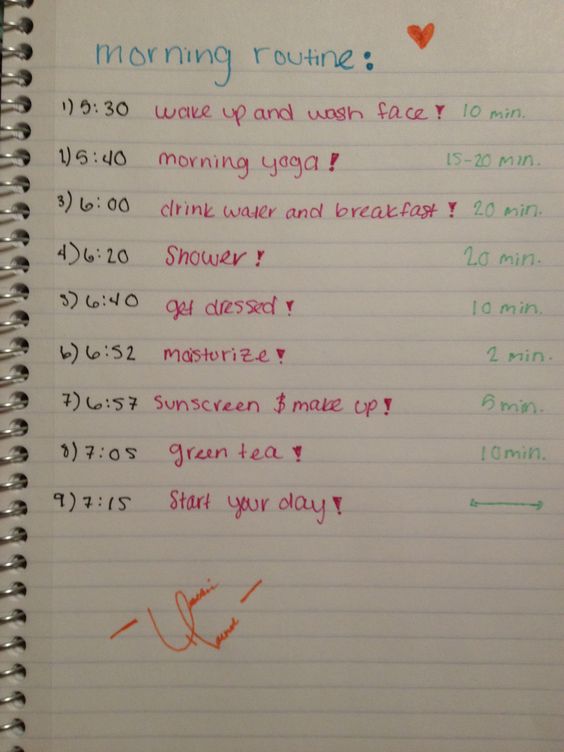 morning routine:
1) 5:30 wake up and wash face! 10 min.
1) 5:40 morning yoga! 15-20 min.
3) 6:00 drink water and breakfast! 20 min.
4) 6:20 Shower! 20 min.
5) 6:40 get dressed! 10 min.
6) 6:52 moisturize! 2 min.
7) 6:57 sunscreen $ make up! 5 min.
8) 7:05 green tea! 10 min.
9) 7:15 Start your day!